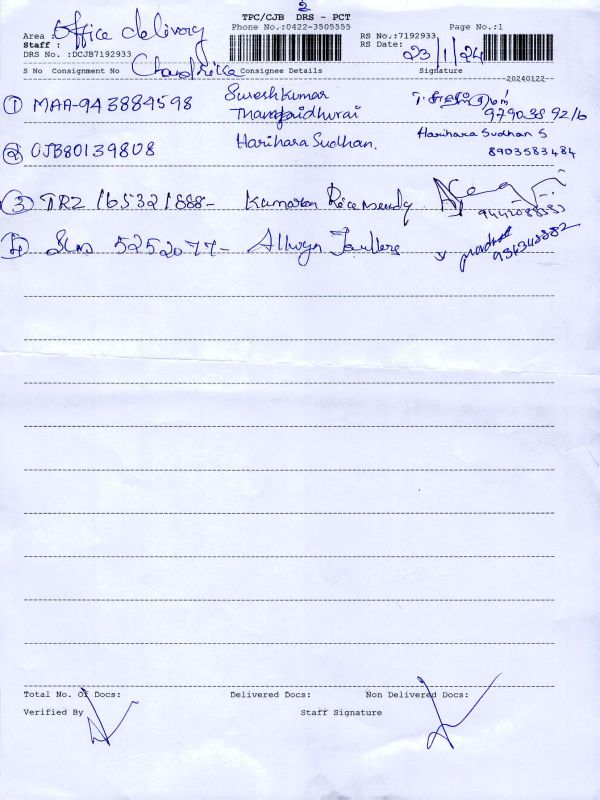 2
TPC/CJB DRS - PCT
Office delivery
Phone No.:0422-3505555
Page No.:1
Area :
RS No.:7192933
Staff :
RS Date:
23/1/24
DRS No. :DCJB7192933
Chandrika
S No Consignment No Consignee Details Signature
20240122
① MAA-943884598 Sureshkumar
Thangaidhurai
② CJB80139808 Harihara Sudhan. Harihara Sudhan S
8903583484
③ TRZ 165321888- Kumaran
④ 5252077- Allwyn
Total No. Of Docs: Delivered Docs: Non Delivered Docs:
Verified By Staff Signature